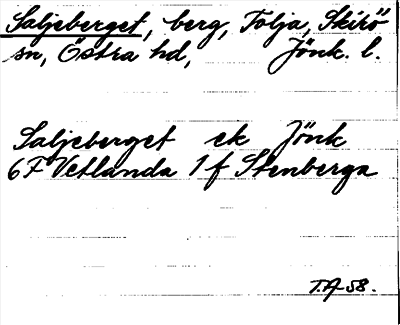 Saljeberget, berg, Følja, Skirö
sn, Östra hd, Jönk. l.
Saljeberget ek Jönk
6F Vetlanda 1f Stenberga
T.A-58.